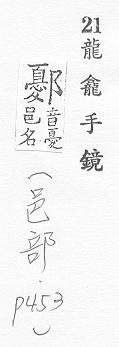 21龍龕手鏡
鄾音憂
邑名
(邑部.
p453)